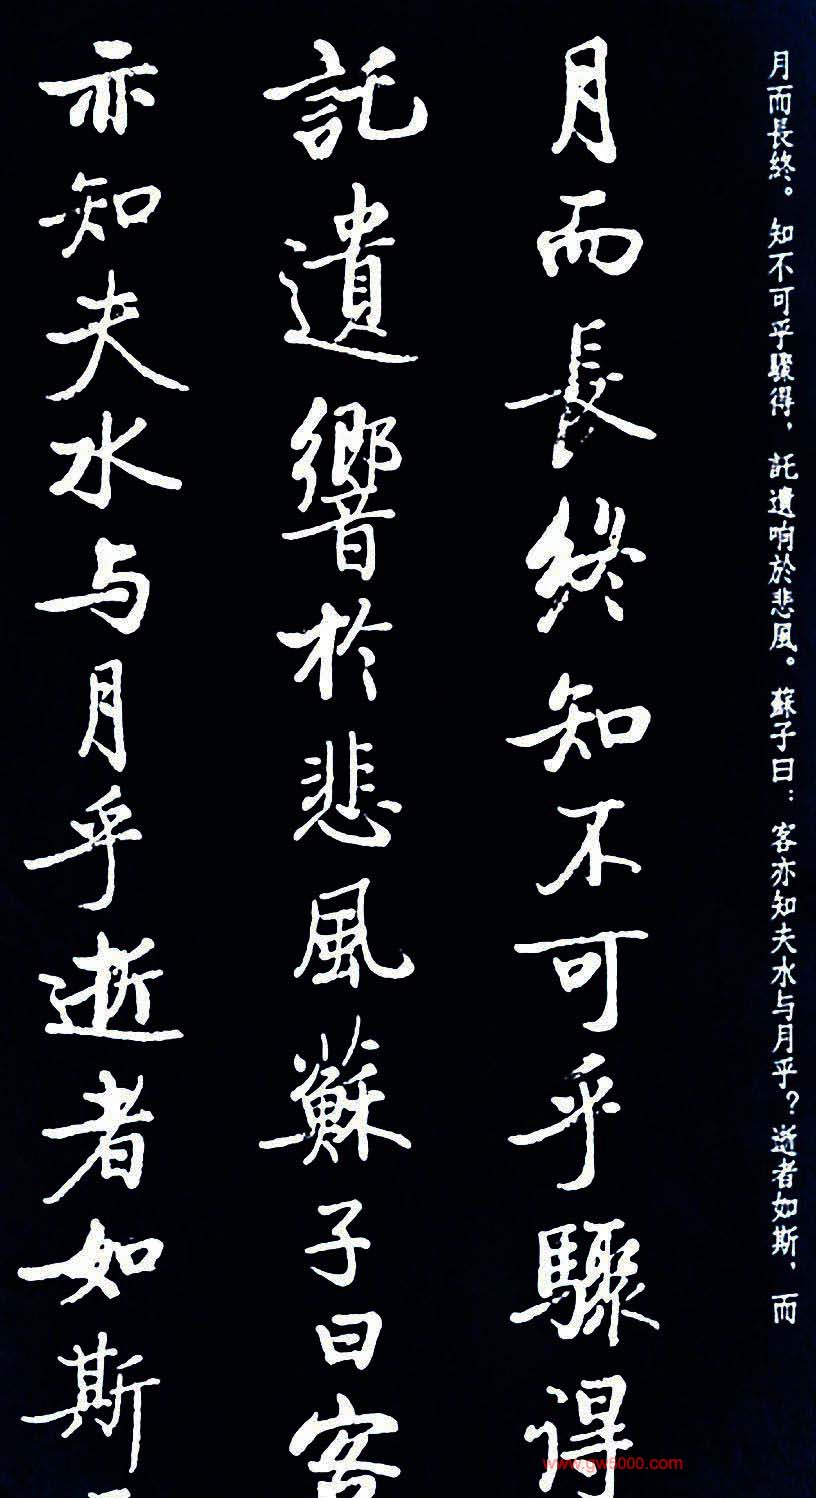 月而長終。知不可乎驟得，託遺响於悲風。蘇子曰：客亦知夫水与月乎？逝者如斯，而
月而長終知不可乎驟得
託遺響於悲風蘇子曰客
亦知夫水与月乎逝者如斯
www.gw5000.com